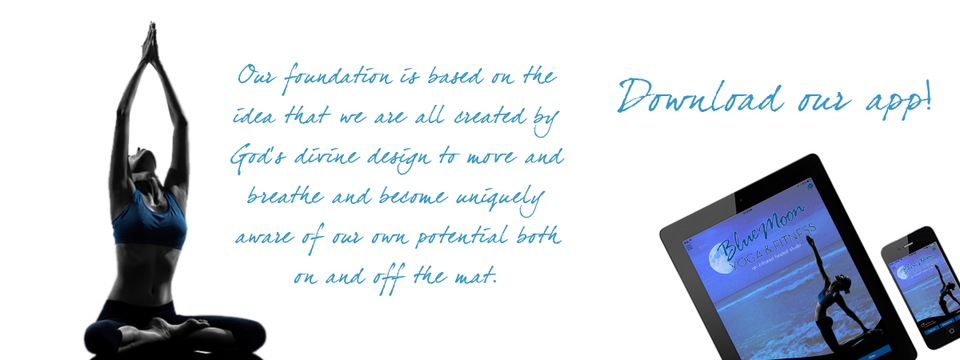 Our foundation is based on the
idea that we are all created by
God's divine design to move and
breathe and become uniquely
aware of our own potential both
on and off the mat.
Download our app!
Blue Moon
YOGA & FITNESS